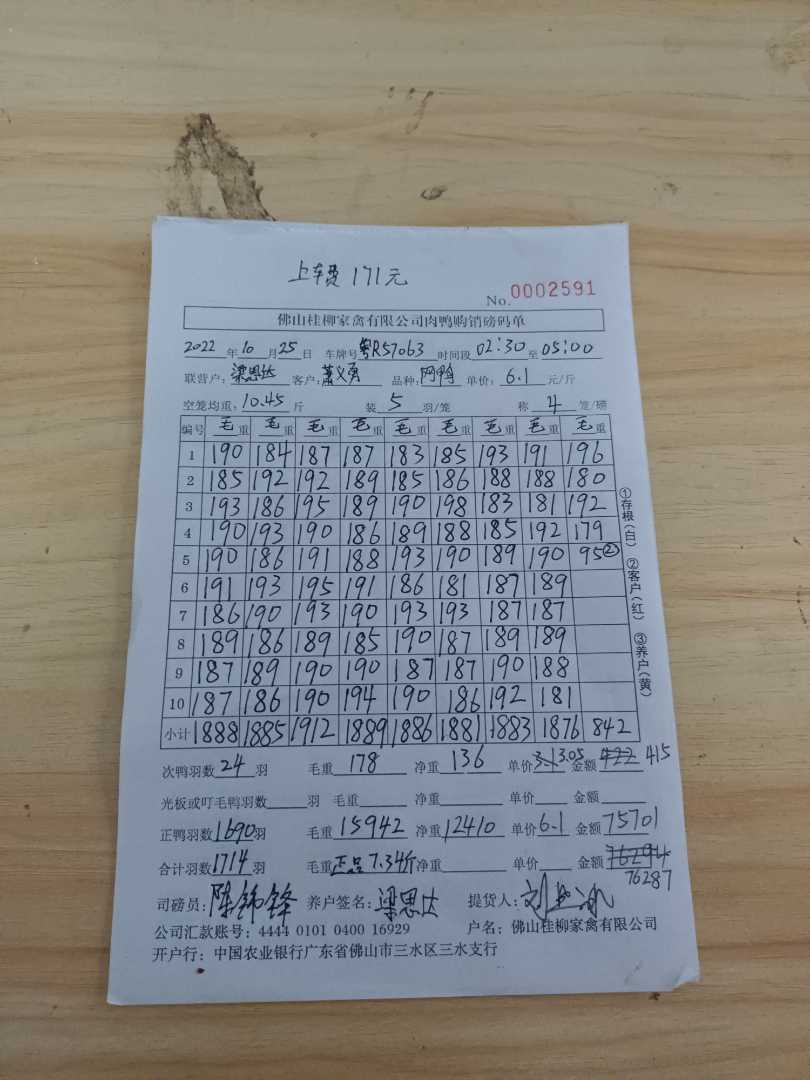 上车费 171元
No. 0002591
佛山桂柳家禽有限公司肉鸭购销磅码单
2022年10月25日 车牌号粤R57063 时间段02:30至05:00
联营户:梁思达 客户:萧义勇 品种: 单价:6.1元/斤
空笼均重:10.45斤 装5羽/笼 称4笼/磅
编号 毛重 毛重 毛重 毛重 毛重 毛重 毛重 毛重 毛重
1 190 184 187 187 183 185 193 191 196
2 185 192 192 189 185 186 188 188 180
3 193 186 195 189 190 198 183 181 192
4 190 193 190 186 189 188 185 192 179
5 190 186 191 188 193 190 189 190 95②
6 191 193 195 191 186 181 187 189
7 186 190 193 190 193 193 187 187
8 189 186 189 185 190 187 189 189
9 187 189 190 190 187 187 190 188
10 187 186 190 194 190 186 192 181
小计 1888 1885 1912 1889 1886 1881 1883 1876 842
①存根(白) ②客户(红) ③养户(黄)
次鸭羽数24羽 毛重178 净重136 单价3.05 金额415
光板或叮毛鸭羽数 羽 毛重 净重 单价 金额
正鸭羽数1690羽 毛重15942 净重12410 单价6.1 金额75701
合计羽数1714羽 毛重正品7.34斤净重 单价 金额76294
76287
司磅员:陈锦锋 养户签名:梁思达 提货人:
公司汇款账号:4444 0101 0400 16929 户名:佛山桂柳家禽有限公司
开户行:中国农业银行广东省佛山市三水区三水支行